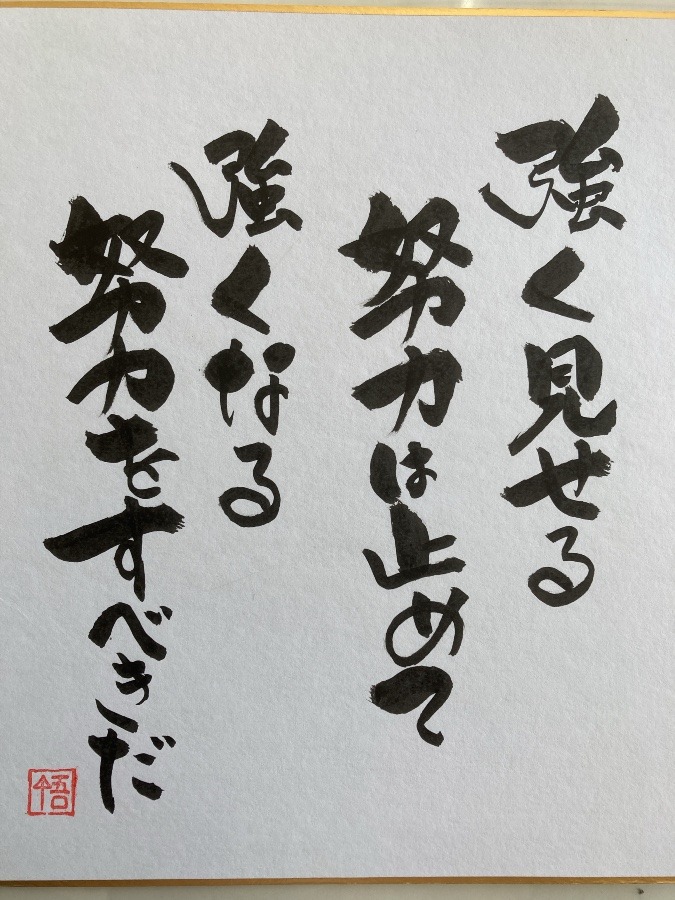 強く見せる
努力は止めて
強くなる
努力をすべきだ
悟